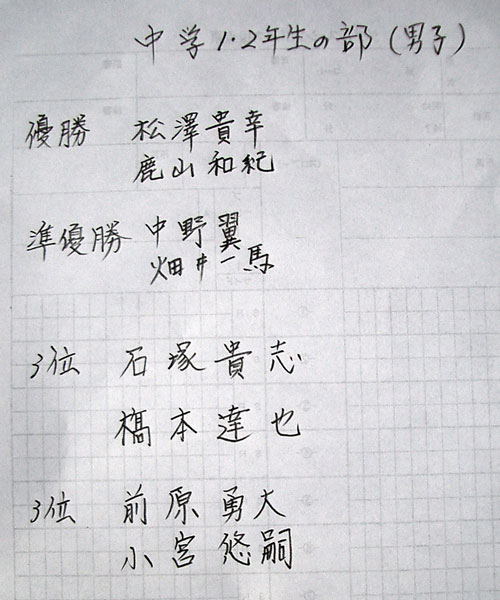 中学1・2年生の部(男子)
優勝 松澤貴幸
鹿山和紀
準優勝 中野翼
畑井一馬
3位 石塚貴志
橋本達也
3位 前原勇大
小宮悠嗣